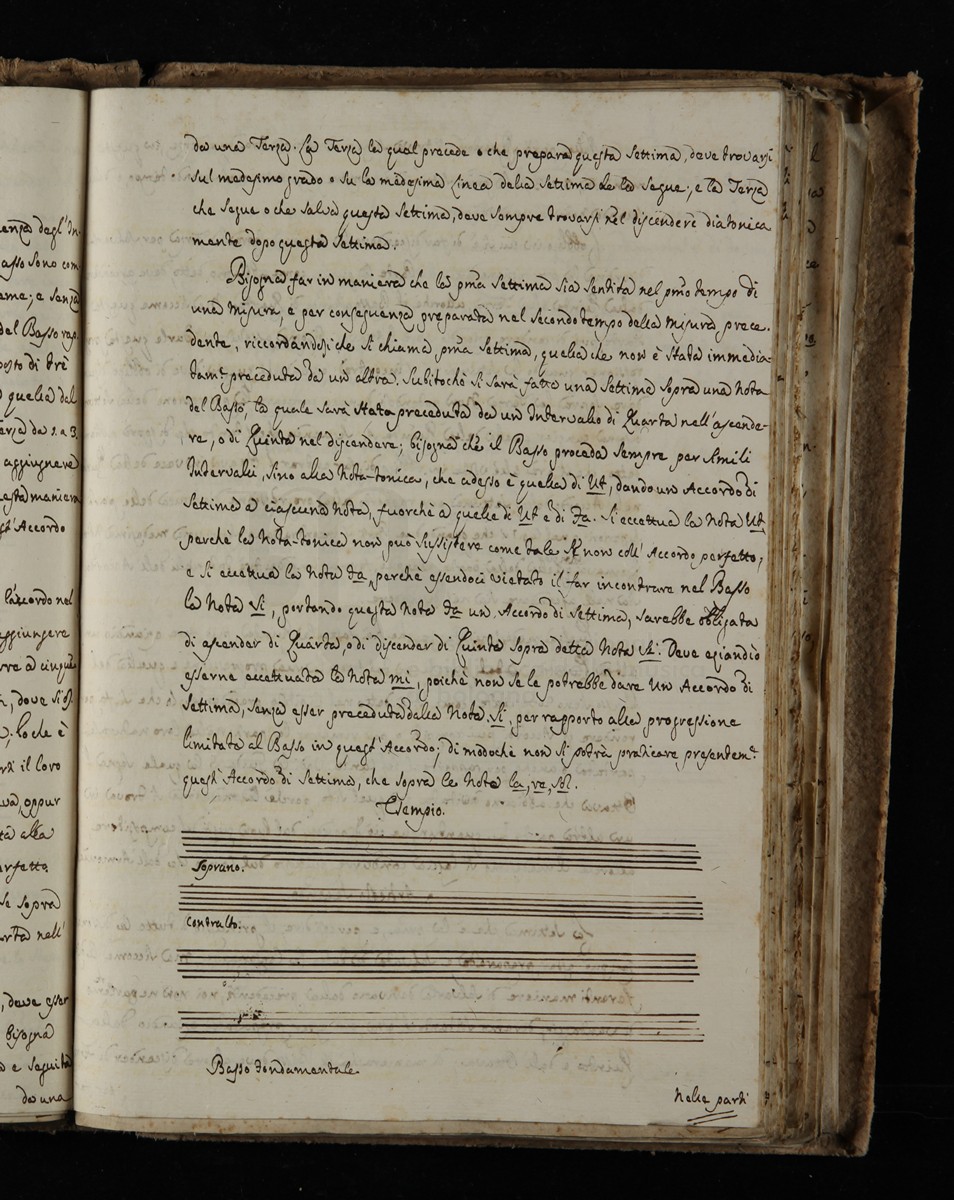 da una Terza. La Terza la qual precede o che prepara questa settima, deve trovarsi
sul medesimo grado o su la medesima linea della settima che la segue; e la Terza
che segue o che salva questa settima, deve sempre trovarsi nel discendere diatonica
mente dopo questa settima.
Bisogna far in maniera che la pma settima sia sentita nel pmo tempo di
una misura, e per conseguenza preparata nel secondo tempo della misura prece-
dente, riccordandosi che si chiama pma settima, quella che non è stata immedia-
tamte preceduta da un altra. Subitochè si sarà fatta una settima sopra una nota
del Basso, la quale sarà stata preceduta da un Intervallo di Quarta nell'ascende-
re, o di Quinta nel discendere; bisogna che il Basso proceda sempre per simili
Intervalli, sino alla nota-tonica, che adesso è quella di Ut, dando un Accordo di
settima a ciascuna nota, fuorchè a quelle di Ut e di Fa. Si eccettua la nota Ut
perchè la nota-tonica non può sussistere come tale se non coll'Accordo perfetto;
e si eccettua la nota Fa, perchè essendoci vietato il far incontrare nel Basso
la nota Si, portando questa nota Fa un Accordo di settima, sarebbe obbligata
di ascender di Quarta, o di discender di Quinta sopra detta nota Si. Deve eziandio
esserne eccettuata la nota mi, poichè non se le potrebbe dare un Accordo di
settima, senza esser preceduta dalla nota Si, per rapporto alla progressione
limitata al Basso in quest'Accordo; di modochè non si potrà praticare presentemte
quest'Accordo di settima, che sopra le note la, re, Sol.
Esempio.
Soprano.
Contralto.
Basso fondamentale
Nelle parti
enza degl'In-
asso sono com
ame; e senza
del Basso rap
posto di trè
quella dal
erza da 1. a 3.
aggiugnere
esta maniera
st'Accordo
l'accordo nel
aggiungere
, dove si
; lo che è
il loro
oppur
tà alla
rfetto.
se sopra
arta nell'
, deve esser
bisogna
e seguita
da una